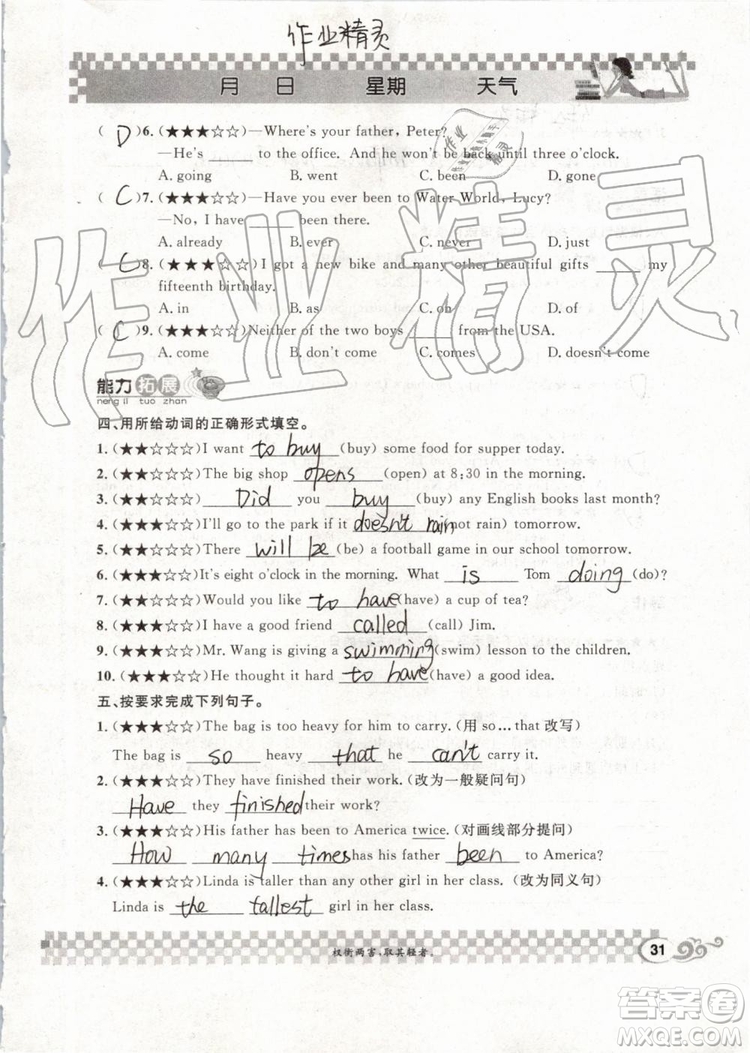 作业精灵
月 日 星期 天气
( D )6.(★★★☆☆)—Where's your father, Peter?
—He's ______ to the office. And he won't be back until three o'clock.
A. going B. went C. been D. gone
( C )7.(★★★☆☆)—Have you ever been to Water World, Lucy?
—No, I have ______ been there.
A. already B. ever C. never D. just
( C )8.(★★★☆☆)I got a new bike and many other beautiful gifts ______ my
fifteenth birthday.
A. in B. as C. on D. of
( C )9.(★★★☆☆)Neither of the two boys ______ from the USA.
A. come B. do come C. comes D. does come
能力拓展
neng li tuo zhan
四、用所给动词的正确形式填空。
1.(★★☆☆☆)I want to buy (buy) some food for supper today.
2.(★★☆☆☆)The big shop opens (open) at 8:30 in the morning.
3.(★★☆☆☆) Did you buy (buy) any English books last month?
4.(★★☆☆☆)I'll go to the park if it doesn't rain (not rain) tomorrow.
5.(★★☆☆☆)There will be (be) a football game in our school tomorrow.
6.(★★☆☆☆)It's eight o'clock in the morning. What is Tom doing (do)?
7.(★★☆☆☆)Would you like to have (have) a cup of tea?
8.(★★☆☆☆)I have a good friend called (call) Jim.
9.(★★☆☆☆)Mr. Wang is giving a swimming (swim) lesson to the children.
10.(★★★☆☆)He thought it hard to have (have) a good idea.
五、按要求完成下列句子。
1.(★★★☆☆)The bag is too heavy for him to carry. (用 so…that 改写)
The bag is so heavy that he can't carry it.
2.(★★★☆☆)They have finished their work. (改为一般疑问句)
Have they finished their work?
3.(★★★☆☆)His father has been to America twice. (对画线部分提问)
How many times has his father been to America?
4.(★★★☆☆)Linda is taller than any other girl in her class. (改为同义句)
Linda is the tallest girl in her class.
权衡两害,取其轻者。
31
作业精灵
作业精灵
答案圈
MXQE.COM